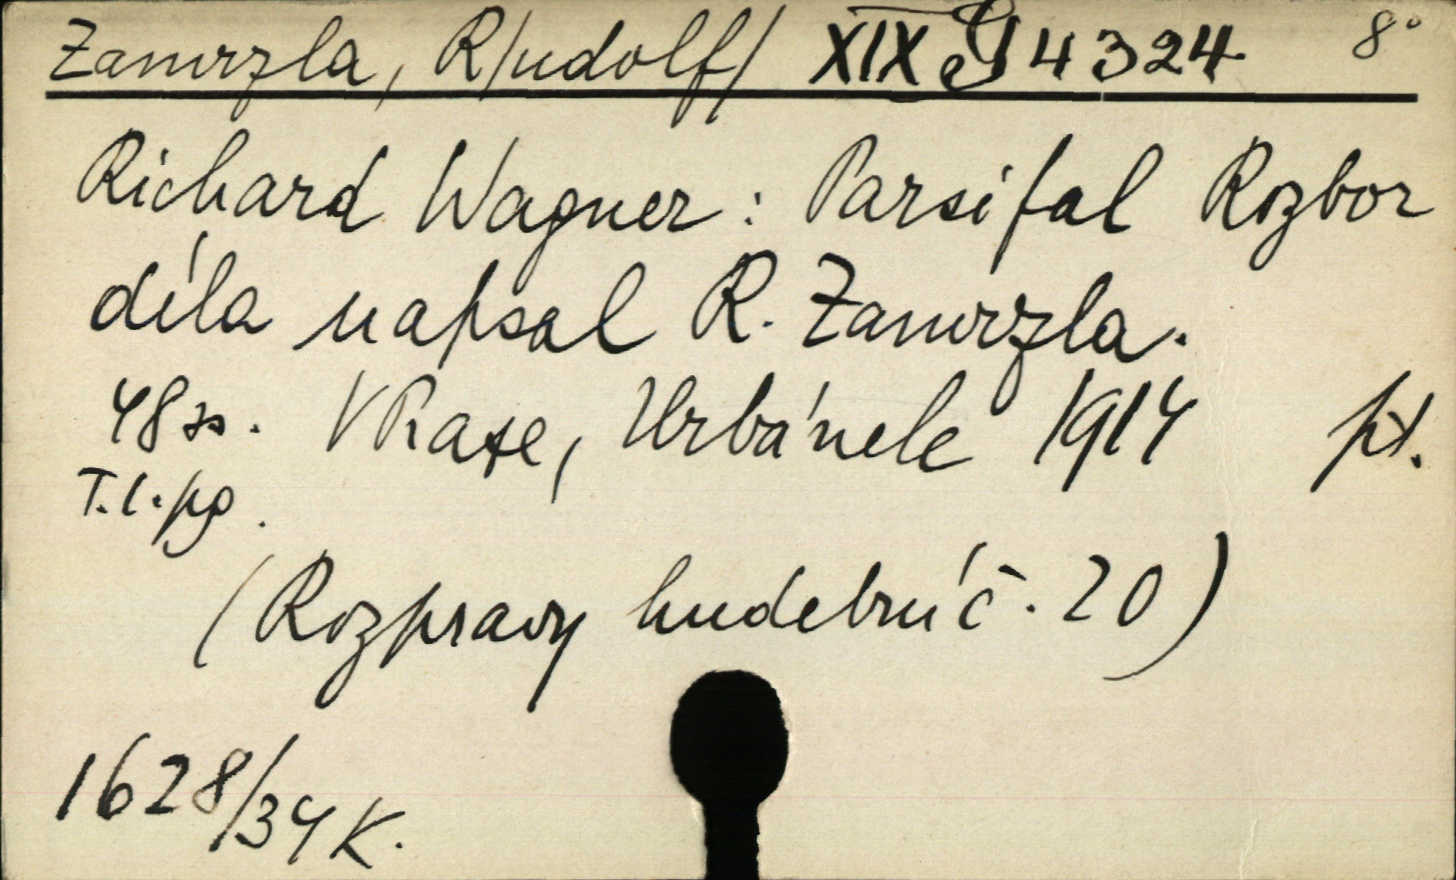 Zamrzla, R/udolf/ XIX G 4324 8°
Richard Wagner: Parsifal Rozbor
díla napsal R. Zamrzla.
48 ss. V Praze, Urbánek 1914 pt.
T.l.pg.
(Rozpravy hudební č. 20)
1628/34 K.